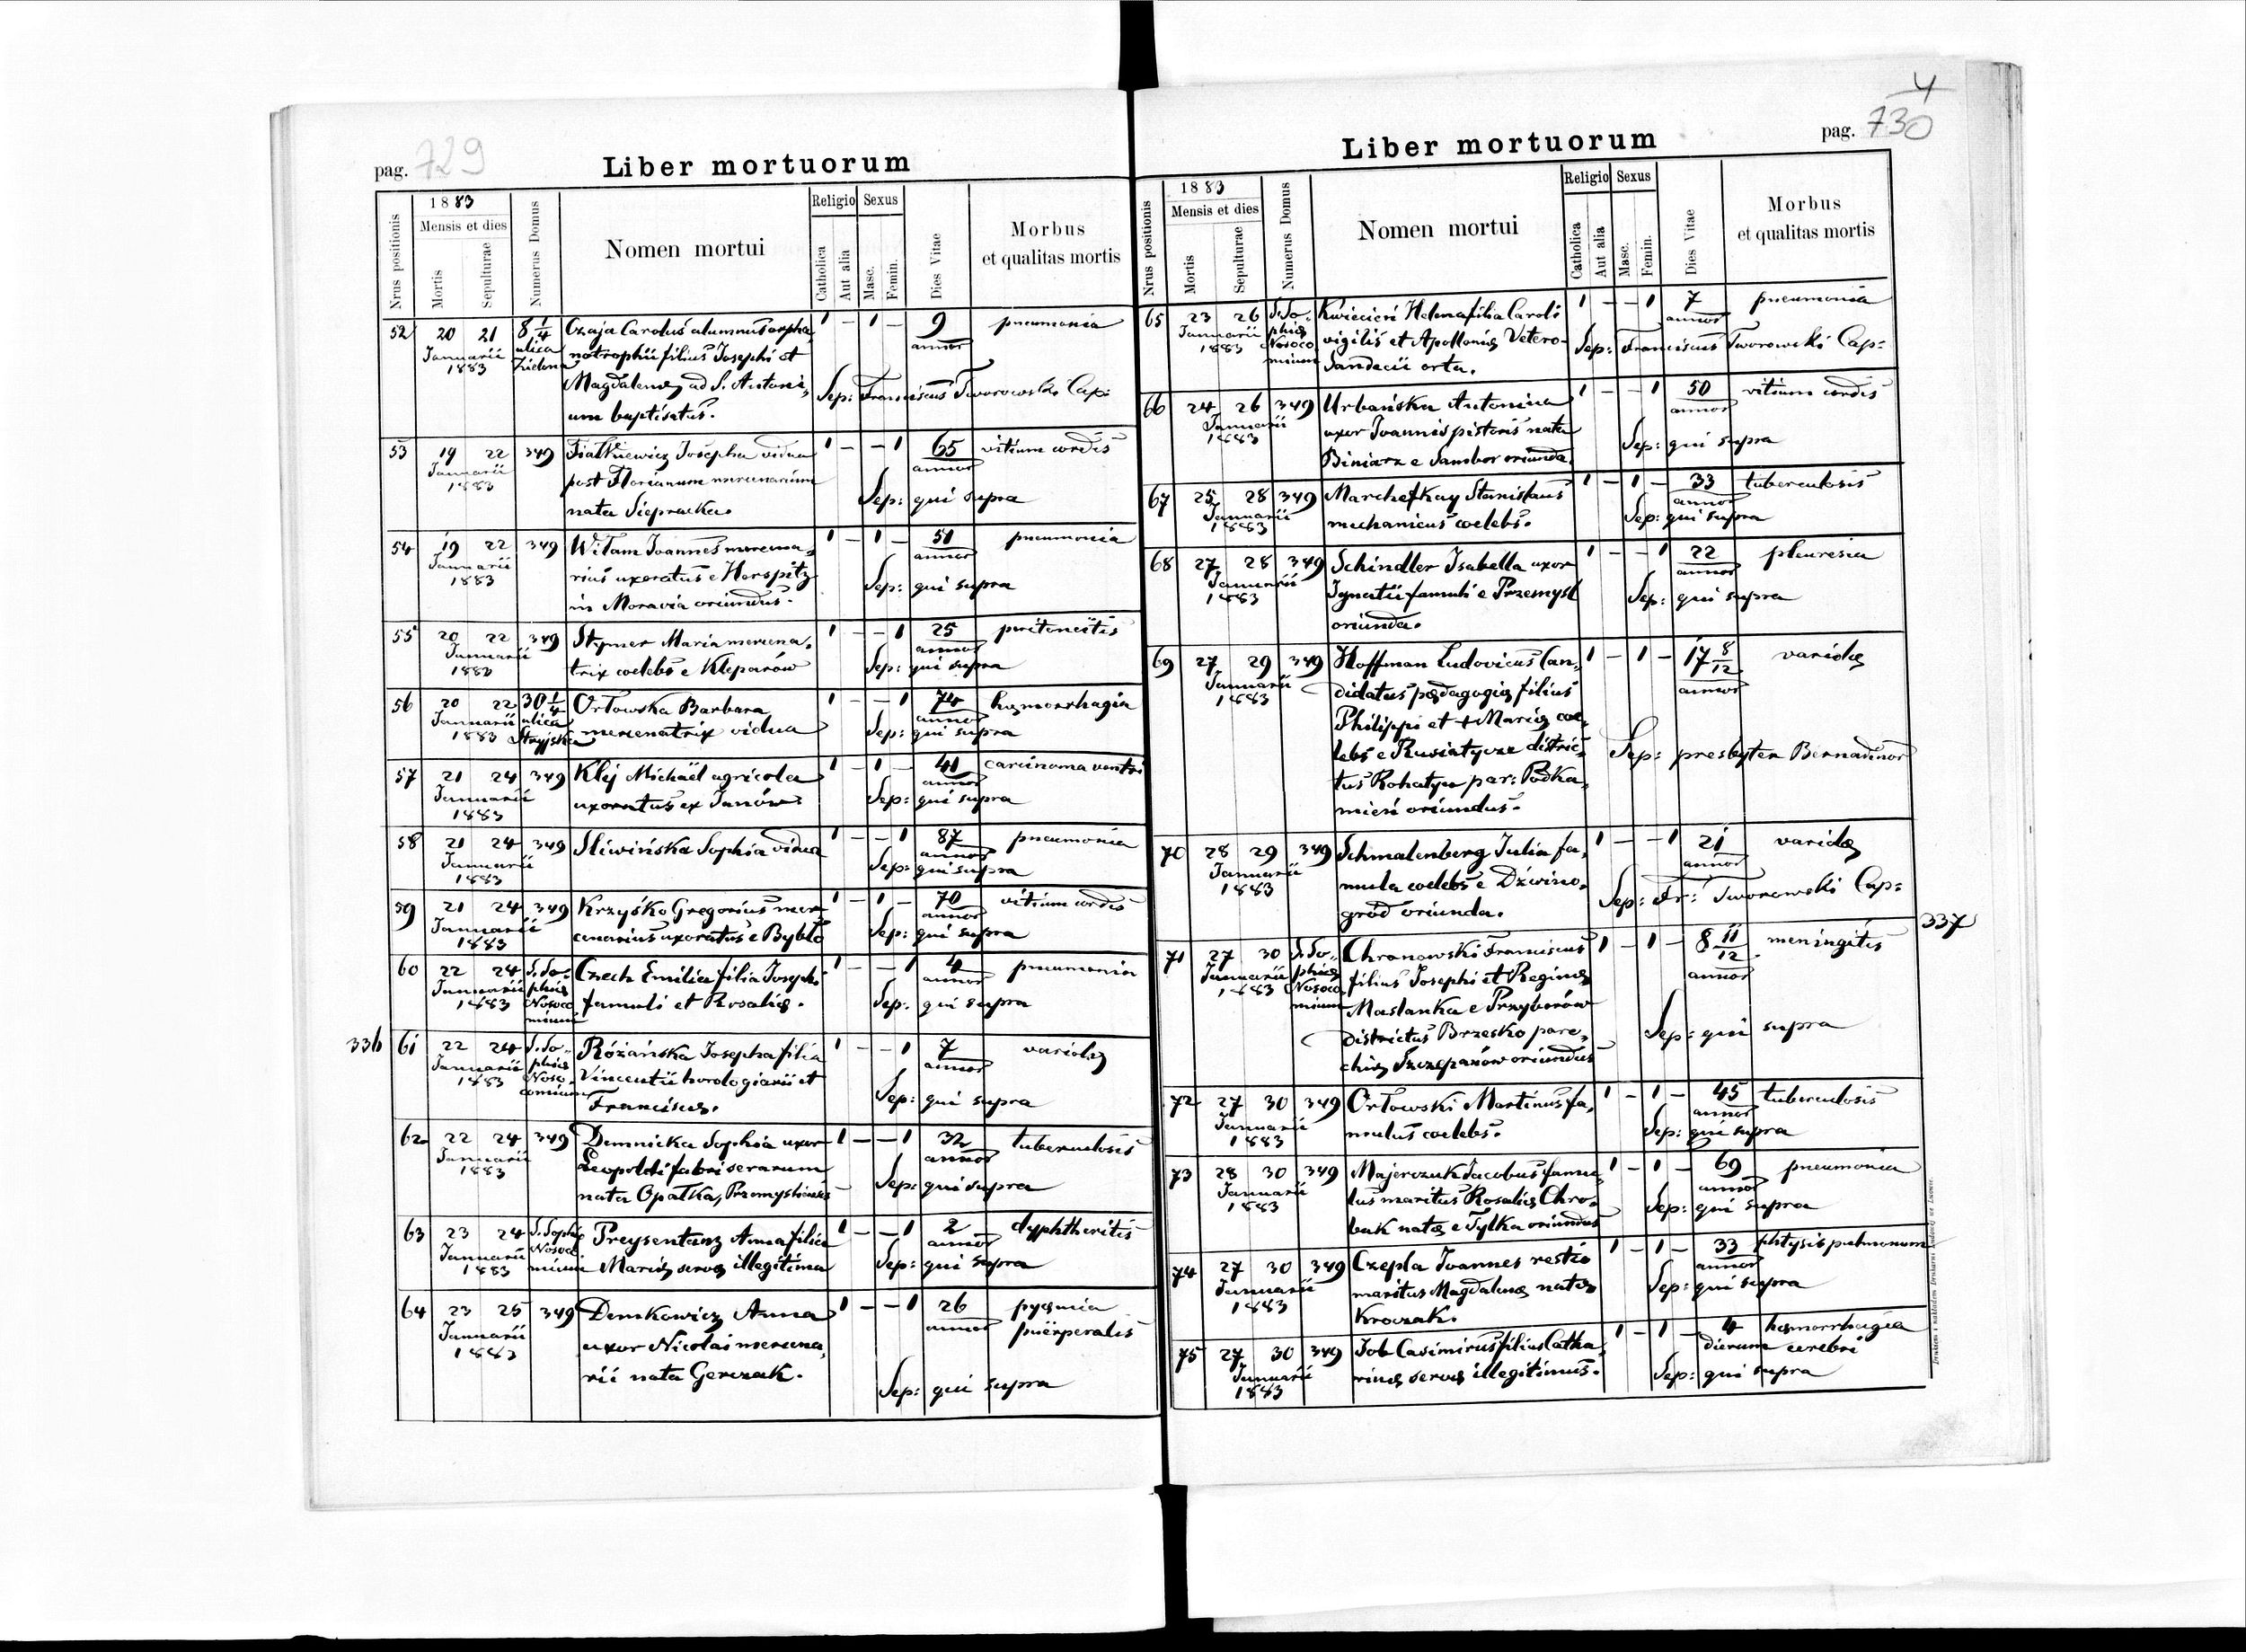 pag. 729
Liber mortuorum
Nrus positionis
1883
Mensis et dies
Mortis
Sepulturae
Numerus Domus
Nomen mortui
Religio
Catholica
Aut alia
Sexus
Masc.
Femin.
Dies Vitae
Morbus
et qualitas mortis
52 20 21 8 1/4 Czaja Carolus alumnus orpha 1 - 1 - 9 pneumonia
Januarii ulica notrophii filius Josephi et annor
1883 Zielona Magdalenę ad S. Antoni, Sep: Franciscus Tworowski Cap:
um baptisatus.
53 19 22 349 Fiałkiewicz Josepha vidua 1 - - 1 65 vitium cordis
Januarii post Florianum mercenarium annor
1883 nata Siepracka. Sep: qui supra
54 19 22 349 Witam Joannes mercena, 1 - 1 - 51 pneumonia
Januarii rius uxoratus e Horspitz annor
1883 in Moravia oriundus. Sep: qui supra
55 20 22 349 Stymer Maria mercena, 1 - - 1 25 peritoneitis
Januarii trix coelebs e Kleparów annor
1883 Sep: qui supra
56 20 22 30 1/4 Orłowska Barbara 1 - - 1 74 hęmorrhagia
Januarii ulica mercenatrix vidua annor
1883 Stryjska Sep: qui supra
57 21 24 349 Klij Michaël agricola 1 - 1 - 41 carcinoma ventri
Januarii uxoratus ex Janów. annor
1883 Sep: qui supra
58 21 24 349 Sliwińska Sophia vidua 1 - - 1 87 pneumonia
Januarii annor
1883 Sep: qui supra
59 21 24 349 Krzyśko Gregorius mer 1 - 1 - 70 vitium cordis
Januarii cenarius uxoratus e Bybło annor
1883 Sep: qui supra
60 22 24 S. So- Czech Emilia filia Josephi 1 - - 1 4 pneumonia
Januarii phię famuli et Rosalię. annor
1883 Nosoco Sep: qui supra
mium
336 61 22 24 S. So- Różańska Josepha filia 1 - - 1 7 variolę
Januarii phię Vincentii horologiarii et annor
1883 Noso- Franciscę. Sep: qui supra
comium
62 22 24 349 Demnicka Sophia uxor 1 - - 1 32 tuberculosis
Januarii Leopoldi fabri serarum annor
1883 nata Opałka, Przemysl Sep: qui supra
63 23 24 S. Sophię Preysentanz Anna filia 1 - - 1 2 dyphtheritis
Januarii Nosoco Marię servę illegitima annor
1883 mium Sep: qui supra
64 23 25 349 Demkowicz Anna 1 - - 1 26 pyęmia
Januarii uxor Nicolai mercena, annor puërperalis
1883 rii nata Gerczak.
Sep: qui supra
4
pag. 730
Liber mortuorum
Nrus positionis
1883
Mensis et dies
Mortis
Sepulturae
Numerus Domus
Nomen mortui
Religio
Catholica
Aut alia
Sexus
Masc.
Femin.
Dies Vitae
Morbus
et qualitas mortis
65 23 26 S. So- Kwicień Helena filia Caroli 1 - - 1 7 pneumonia
Januarii phię vigilis et Apollonię Vetero- annor
1883 Nosoco Sandecii orta. Sep: Franciscus Tworowski Cap:
mium
66 24 26 349 Urbańska Antonina 1 - - 1 50 vitium cordis
Januarii uxor Joannis pistoris nata annor
1883 Biniarz e Sambor oriunda. Sep: qui supra
67 25 28 349 Marchefkay Stanislaus 1 - 1 - 33 tuberculosis
Januarii mechanicus coelebs. annor
1883 Sep: qui supra
68 27 28 349 Schindler Isabella uxor 1 - - 1 22 pleuresia
Januarii Ignatii famuli e Przemysl annor
1883 oriunda. Sep: qui supra
69 27 29 349 Hoffman Ludovicus can, 1 - 1 - 17 8/12 variolę
Januarii didatus pędagogię filius annor
1883 Philippi et + Marię coe,
lebs e Rusiatycze distric, Sep: presbyter Bernadinor
tus Rohatyn par: Podka,
mień oriundus.
70 28 29 349 Schmalenberg Julia fa, 1 - - 1 21 variolę
Januarii mula coelebs e Dźwino, annor
1883 gród oriunda. Sep: Fr: Tworowski Cap:
337
71 27 30 S. So- Chronowski Franciscus 1 - 1 - 8 11/12 meningitis
Januarii phię filius Josephi et Reginę annor
1883 Nosoco Maslanka e Przyborów
mium districtus Brzesko paro, Sep: qui supra
chię Szczepanów oriundus
72 27 30 349 Orłowski Martinus fa, 1 - 1 - 45 tuberculosis
Januarii mulus coelebs. annor
1883 Sep: qui supra
73 28 30 349 Majerczuk Jacobus famu 1 - 1 - 69 pneumonia
Januarii lus maritus Rosalię Chro, annor
1883 bak natę e Tylka oriundus Sep: qui supra
74 27 30 349 Czepla Joannes restio 1 - 1 - 33 phtysis pulmonum
Januarii maritus Magdalenę natę annor
1883 Kroczak. Sep: qui supra
75 27 30 349 Job Casimirus filius Catha, 1 - 1 - 4 hęmorrhagia
Januarii rinę servę illegitimus. dierum cerebri
1883 Sep: qui supra